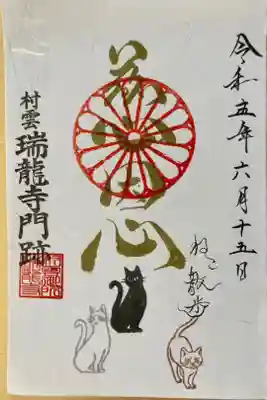 令和五年六月十五日
慈悲心
ねこ散歩
村雲
瑞龍寺門跡